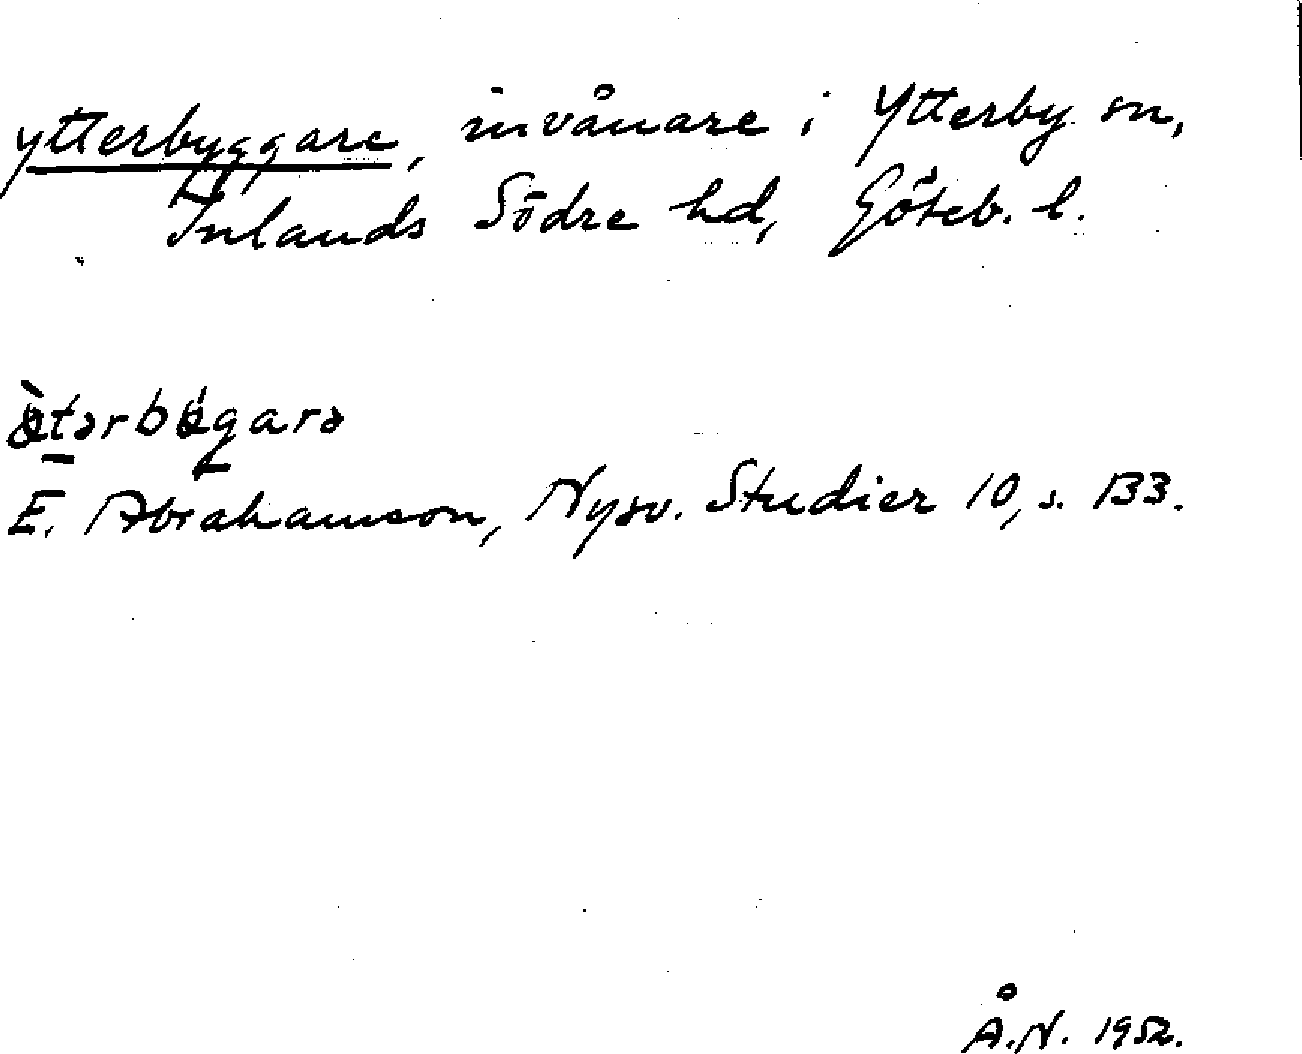 ytterbyggare, invånare i Ytterby sn,
Inlands Södre hd, Göteb. l.
E. Abrahamson, Nysv. Studier 10, s. 133.
Å.N. 1952.